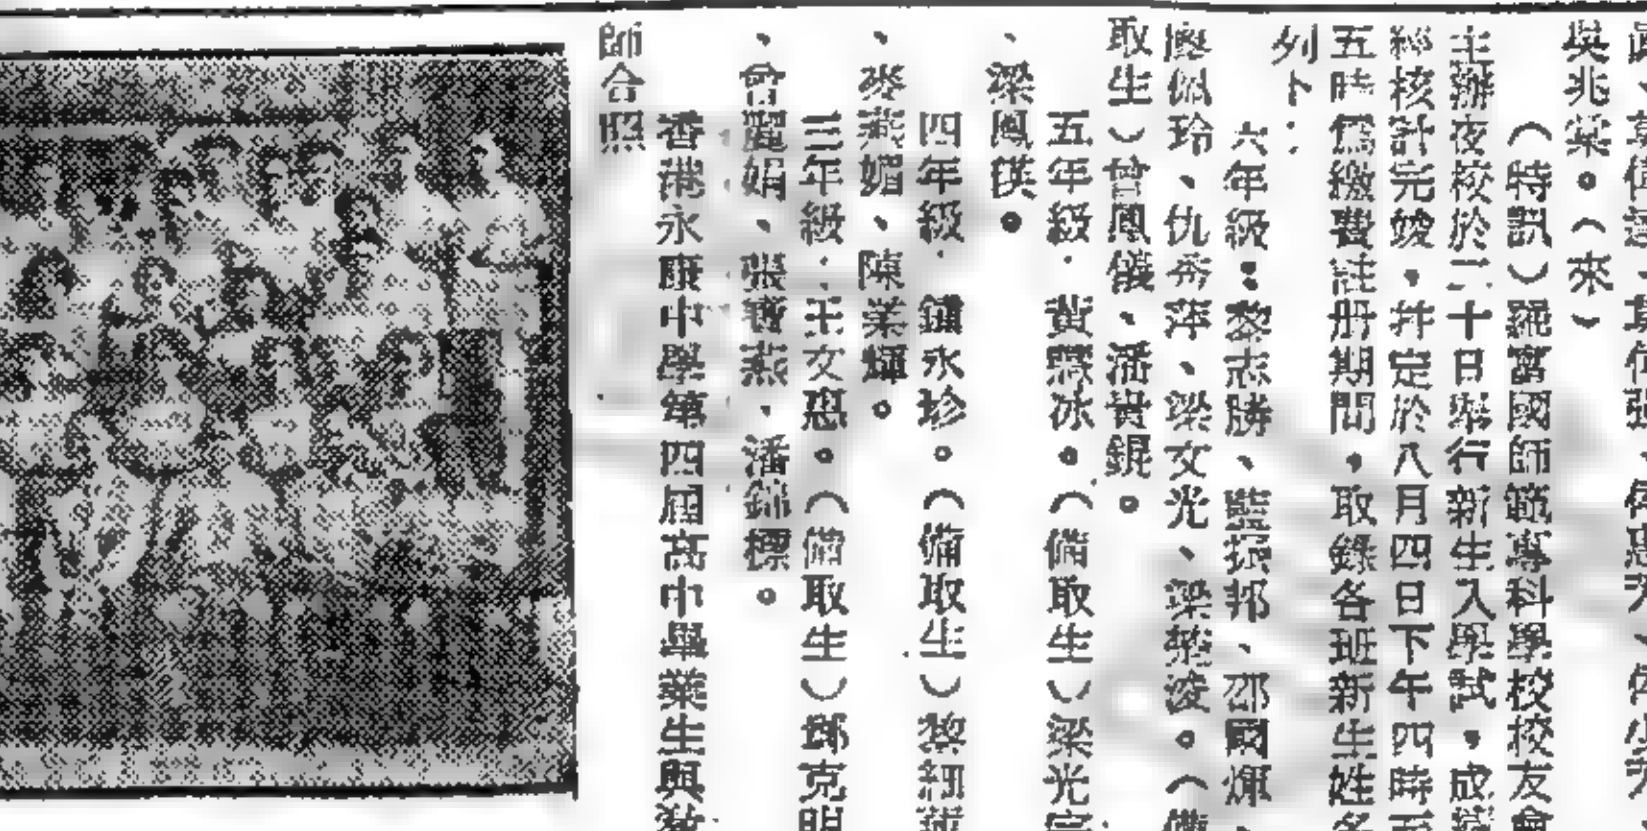 吳兆棠。（來）
（特訊）羅富國師範專科學校校友會
主辦夜校於二十日舉行新生入學試，成績
經核計完竣，幷定於八月四日下午四時至
五時爲繳費註册期間，取錄各班新生姓名
列下：
六年級：黎志勝、監振邦、邵國煇、
廖佩玲、仇希萍、梁女光、梁楚浚。（備
取生）曾鳳儀、潘貴錕。
五年級：黃冰。（備取生）梁光宗
、梁鳳
四年級：鍾永珍。（備取生）黎細
、麥燕媚、陳業輝。
三年級：王女惠。（備取生）鄧克明
、曾麗娟、張寶燕、潘錦標。
香港永康中學第四屆高中畢業生與教
師合照